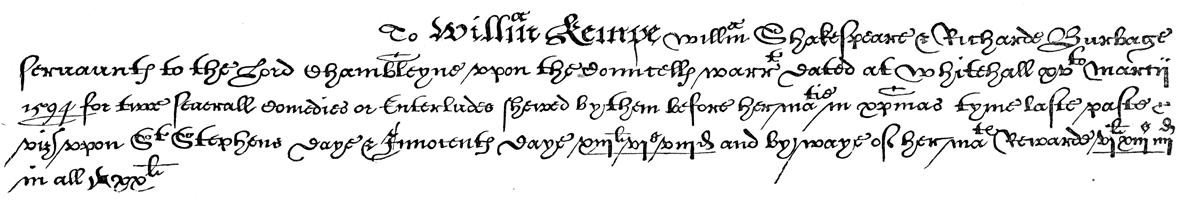 To Willm̄ Kempe willm̄ Shakespeare & Richarde Burbage
seruaunts to the Lord Chambleyne vpon the Councells warrt dated at Whitehall xvto Marcij
1594 for twoe seuerall Comedies or Enterludes shewed by them before her matie in xpmas tyme laste paste
viz vpon St Stephens daye & Innocents daye xiijli vjs viijd and by waye of her mats Rewarde vjli xiijs iiijd
in all xxli